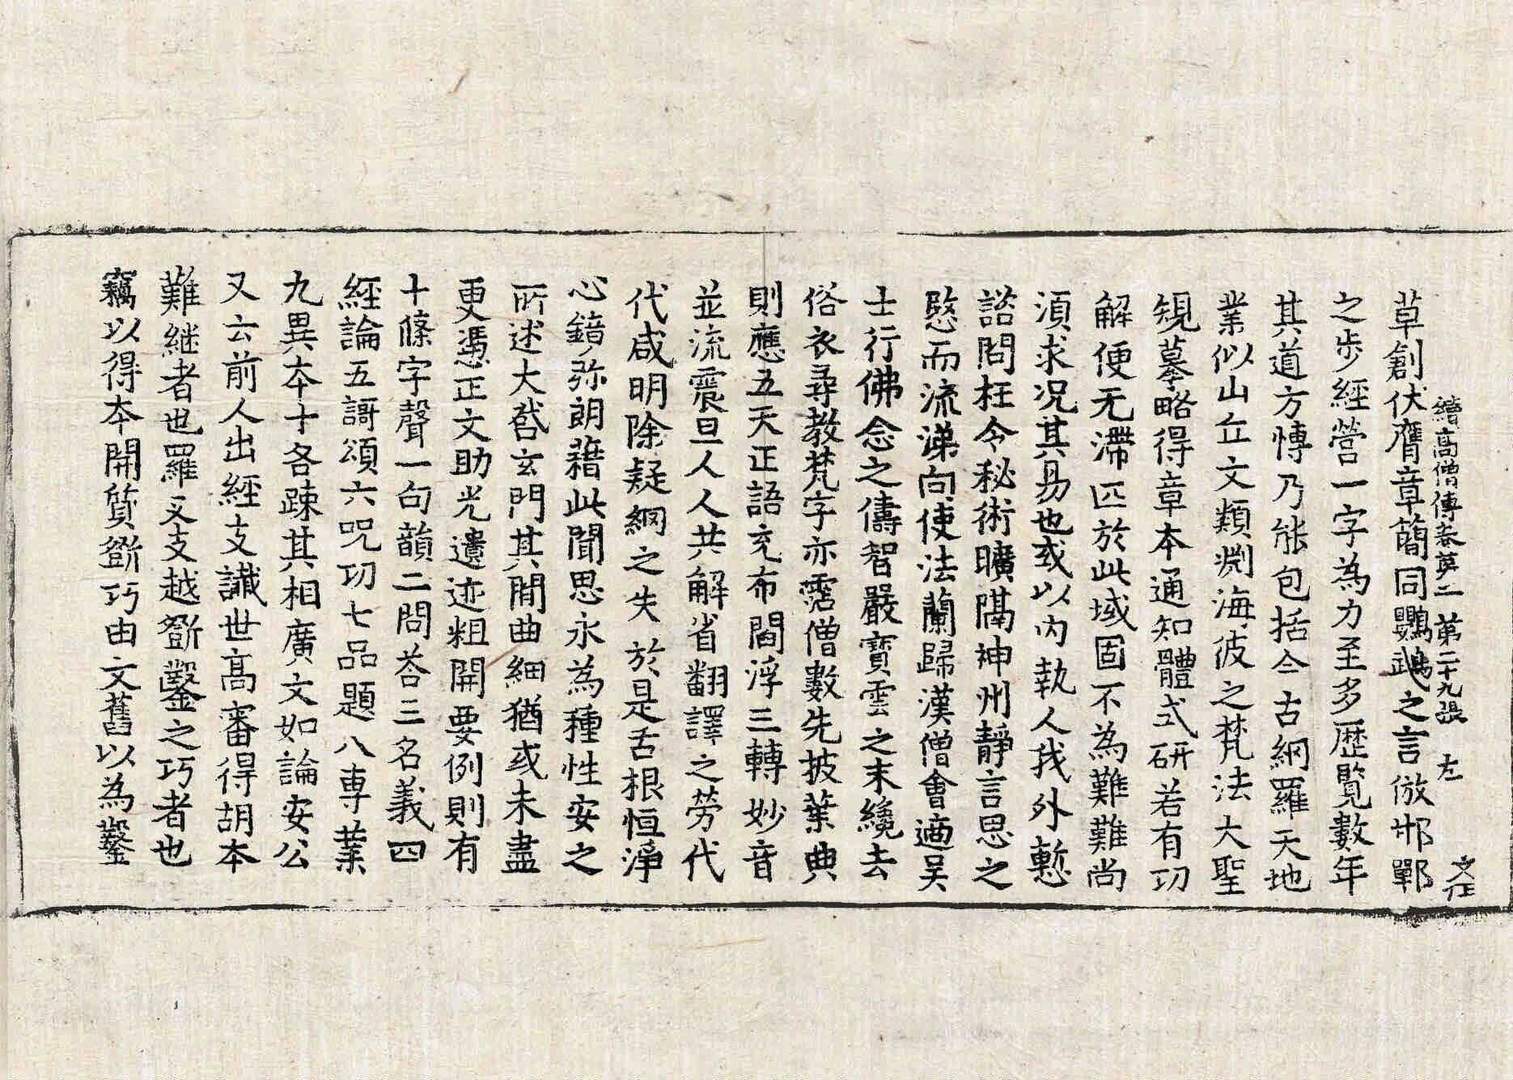 續高僧傳卷第二 第二十九張 左
草創伏膺章簡同鸚鵡之言倣邯鄲
之步經營一字為力至多歷覽數年
其道方博乃能包括今古綱羅天地
業似山丘文類淵海彼之梵法大聖
規摹略得章本通知體式研若有功
解便无滯匹於此域固不為難難尚
須求况其易也或以內執人我外慙
諮問枉令秘術曠隔神州靜言思之
愍而流涕向使法蘭歸漢僧會適吳
士行佛念之儔智嚴寶雲之末纔去
俗衣尋教梵字亦霑僧數先披葉典
則應五天正語充布閻浮三轉妙音
並流震旦人人共解省翻譯之勞代
代咸明除疑網之失於是舌根恒淨
心鏡弥朗藉此聞思永為種性安之
所述大啓玄門其間曲細猶或未盡
更憑正文助光遺迹粗開要例則有
十條字聲一句韻二問荅三名義四
經論五謌頌六呪功七品題八專業
九異本十各疎其相廣文如論安公
又云前人出經支讖世高審得胡本
難継者也羅叉支越斵鑿之巧者也
竊以得本開質斵巧由文舊以為鑿